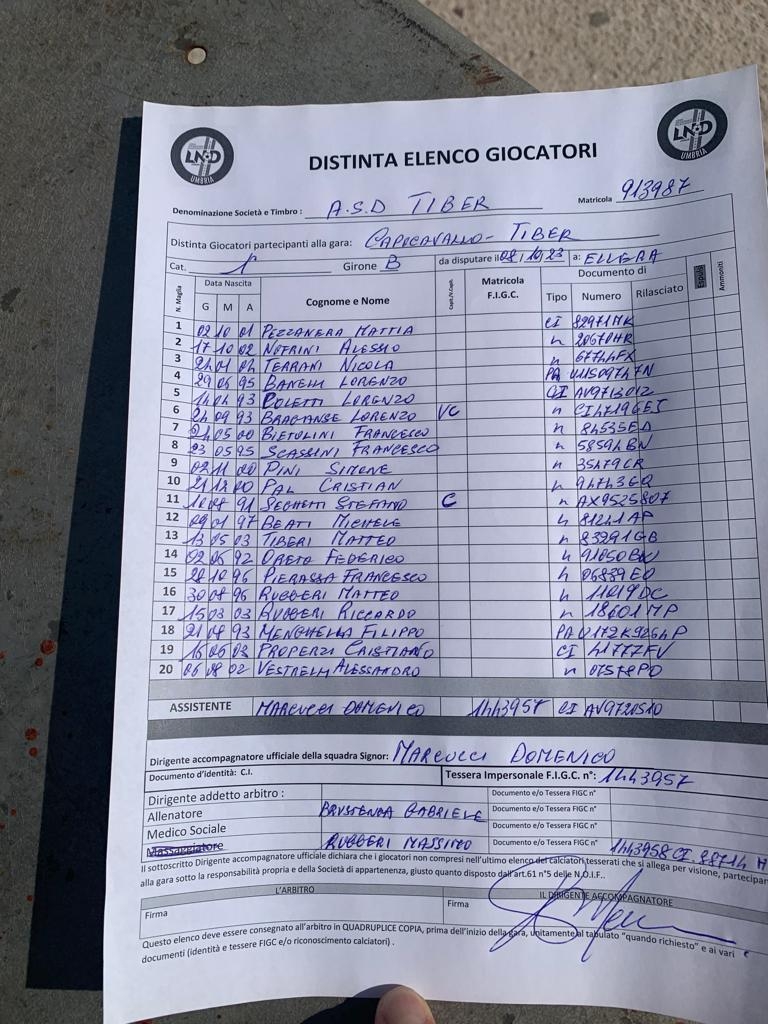 LND
UMBRIA
DISTINTA ELENCO GIOCATORI
LND
UMBRIA
Denominazione Società e Timbro : A.S.D TIBER Matricola 913987
Distinta Giocatori partecipanti alla gara: CAPOCAVALLO - TIBER
Cat. 1ª Girone B da disputare il 08/10/23 a: ELLERA
N. Maglia Data Nascita G M A Cognome e Nome Capit./V.Capit. Matricola F.I.G.C. Documento di Tipo Numero Rilasciato Espulsi Ammoniti
1 02 10 01 PEZZANERA MATTIA CI 82971MK
2 17 10 02 NOFRINI ALESSIO " 20670HR
3 TERRANI NICOLA " 67744FX
4 29 06 95 BANELLI LORENZO PA
5 14 04 93 POLETTI LORENZO CI AV9713012
6 24 09 93 BRAGANSE LORENZO VC "
7 24 05 00 BIETOLINI FRANCESCO " 84535ED
8 23 05 95 SCASSINI FRANCESCO " 58594BN
9 02 11 00 PINI SIMONE " 35479CR
10 21 12 00 PAL CRISTIAN " 94743EQ
11 91 SEGHETTI STEFANO C " AX9525807
12 09 01 97 BEATI MICHELE " 81241AP
13 13 05 03 TIBERI MATTEO " 83291GB
14 02 06 92 ORETO FEDERICO "
15 28 10 96 PIERASSA FRANCESCO " 06839EO
16 30 08 96 RUGGERI MATTEO " 11019DC
17 15 03 03 RUGGERI RICCARDO " 18601MP
18 93 MENGHELLA FILIPPO PA
19 16 06 03 PROPERZI CRISTIANO CI 41777FV
20 06 08 02 VESTRELLI ALESSANDRO " 07578PD
ASSISTENTE MARCUCCI DOMENICO 1443957 CI AV9720510
Dirigente accompagnatore ufficiale della squadra Signor: MARCUCCI DOMENICO
Documento d'identità: C.I. Tessera Impersonale F.I.G.C. n°: 1443957
Dirigente addetto arbitro : Documento e/o Tessera FIGC n°
Allenatore BRUSTENGA GABRIELE Documento e/o Tessera FIGC n°
Medico Sociale Documento e/o Tessera FIGC n°
Massaggiatore RUGGERI MASSIMO Documento e/o Tessera FIGC n° 1443958 CI.
Il sottoscritto Dirigente accompagnatore ufficiale dichiara che i giocatori non compresi nell'ultimo elenco dei calciatori tesserati che si allega per visione, partecipan
alla gara sotto la responsabilità propria e della Società di appartenenza, giusto quanto disposto dall'art.61 n°5 delle N.O.I.F..
L'ARBITRO IL DIRIGENTE ACCOMPAGNATORE
Firma Firma
Questo elenco deve essere consegnato all'arbitro in QUADRUPLICE COPIA, prima dell'inizio della gara, unitamente al tabulato "quando richiesto" e ai vari
documenti (identità e tessere FIGC e/o riconoscimento calciatori) .